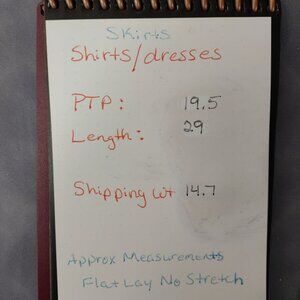 Skirts
Shirts/dresses
PTP: 19.5
Length: 29
Shipping wt 14.7
Approx Measurements
Flat Lay No Stretch